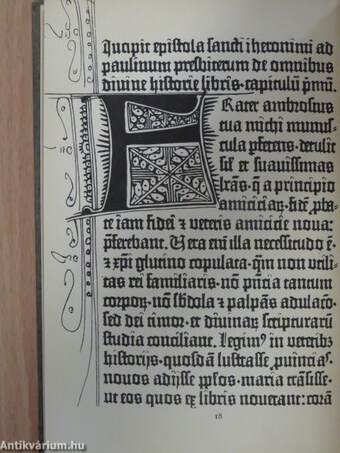 Incipit epistola sancti iheronimi ad
paulinum presbiterum de omnibus
divine historie libris. capitulū pmū.
Frater ambrosius
tua michi munus-
cula pferens. detulit
sil et suavissimas
lrās. q a principio
amiciciaꝝ. fidē pba-
te iam fidei ⁊ veteris amicicie nova:
pferebant. Vera eni illa necessitudo ē.
⁊ xpi glutino copulata. qm non utili-
tas rei familiaris. nō pncia tantum
corpoꝝ. nō sbdola ⁊ palpās adulaco.
sed dei timor. et divinaꝝ scripturarū
studia conciliant. Legimꝰ in veteribꝫ
historijs. quosdā lustrasse. puincias.
novos adijsse pplos. maria trāsisse.
ut eos quos ex libris noverant: corā
18
Antikvárium.hu